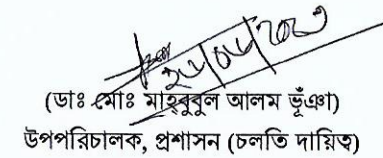 (ডাঃ মোঃ মাহবুবুল আলম ভূঁঞা)
উপপরিচালক, প্রশাসন (চলতি দায়িত্ব)